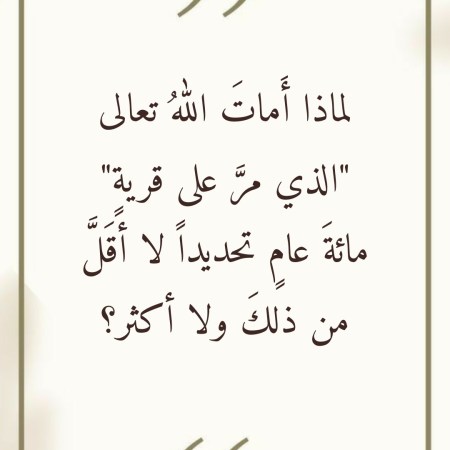 لماذا أَماتَ اللهُ تعالى
"الذي مرَّ على قريةٍ"
مائةَ عامٍ تحديداً لا أَقَلَّ
من ذلكَ ولا أكثر؟